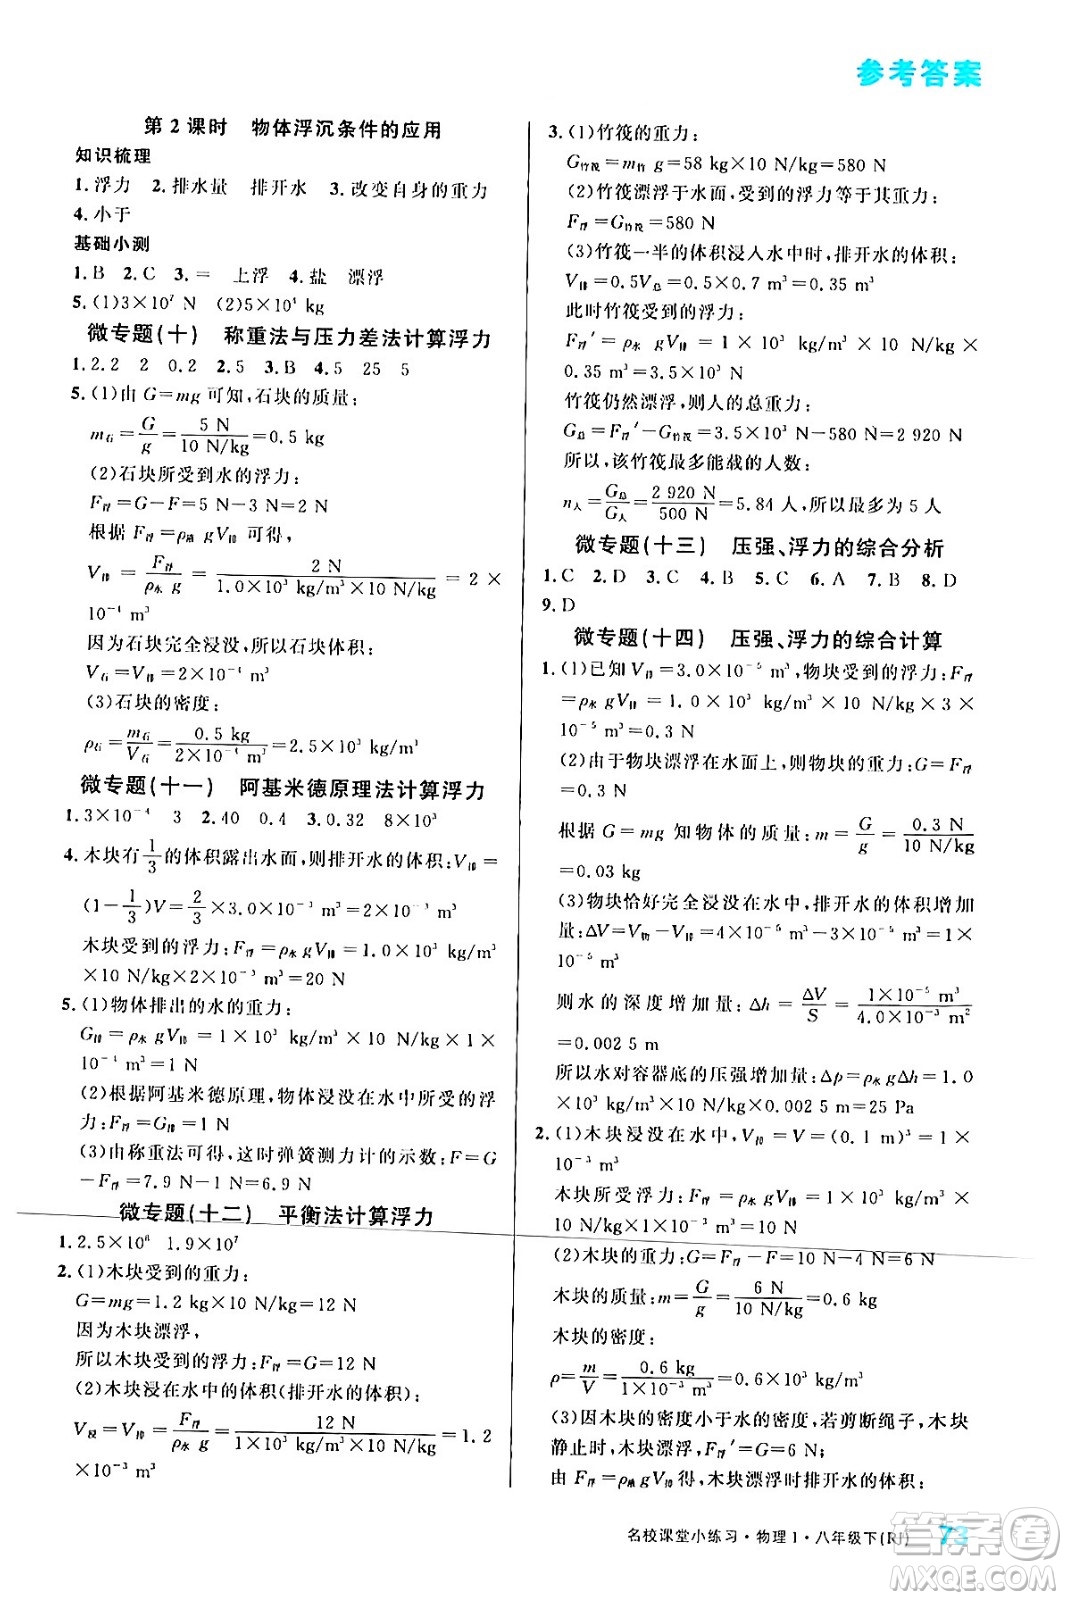 参考答案
第2课时　物体浮沉条件的应用
知识梳理
1.浮力　2.排水量　排开水　3.改变自身的重力
4.小于
基础小测
1.B　2.C　3.＝　上浮　4.盐　漂浮
5.(1)3×10⁷ N　(2)5×10⁴ kg
微专题(十)　称重法与压力差法计算浮力
1.2.2　2　0.2　2.5　3.B　4.5　25　5
5.(1)由 G=mg 可知,石块的质量:
m石=G/g=5 N/10 N/kg=0.5 kg
(2)石块所受到水的浮力:
F浮=G－F=5 N－3 N=2 N
根据 F浮=ρ液 gV排 可得,
V排=F浮/ρ水 g=2 N/1.0×10³ kg/m³×10 N/kg=2×
10⁻⁴ m³
因为石块完全浸没,所以石块体积:
V石=V排=2×10⁻⁴ m³
(3)石块的密度:
ρ石=m石/V石=0.5 kg/2×10⁻⁴ m³=2.5×10³ kg/m³
微专题(十一)　阿基米德原理法计算浮力
1.3×10⁻⁴　3　2.40　0.4　3.0.32　8×10³
4.木块有1/3的体积露出水面,则排开水的体积:V排=
(1－1/3)V=2/3×3.0×10⁻³ m³=2×10⁻³ m³
木块受到的浮力:F浮=ρ水 gV排=1.0×10³ kg/m³
×10 N/kg×2×10⁻³ m³=20 N
5.(1)物体排出的水的重力:
G排=ρ水 gV排=1×10³ kg/m³×10 N/kg×1×
10⁻⁴ m³=1 N
(2)根据阿基米德原理,物体在水中所受的浮
力:F浮=G排=1 N
(3)由称重法可得,这时弹簧测力计的示数:F=G
－F浮=7.9 N－1 N=6.9 N
微专题(十二)　平衡法计算浮力
1.2.5×10⁶　1.9×10⁷
2.(1)木块受到的重力:
G=mg=1.2 kg×10 N/kg=12 N
因为木块漂浮,
所以木块受到的浮力:F浮=G=12 N
(2)木块浸在水中的体积(排开水的体积):
V浸=V排=F浮/ρ水 g=12 N/1×10³ kg/m³×10 N/kg=1.2
×10⁻³ m³
3.(1)竹筏的重力:
G竹筏=m竹筏 g=58 kg×10 N/kg=580 N
(2)竹筏漂浮于水面,受到的浮力等于其重力:
F浮=G竹筏=580 N
(3)竹筏一半的体积浸入水中时,排开水的体积:
V排=0.5V总=0.5×0.7 m³=0.35 m³
此时竹筏受到的浮力:
F浮′=ρ水 gV排=1.0×10³ kg/m³×10 N/kg×
0.35 m³=3.5×10³ N
竹筏仍然漂浮,则人的总重力:
G总=F浮′－G竹筏=3.5×10³ N－580 N=2 920 N
所以,该竹筏最多能载的人数:
n人=G总/G人=2 920 N/500 N=5.84 人,所以最多为 5 人
微专题(十三)　压强、浮力的综合分析
1.C　2.D　3.D　4.B　5.C　6.A　7.B　8.D
9.D
微专题(十四)　压强、浮力的综合计算
1.(1)已知 V排=3.0×10⁻⁵ m³,物块受到的浮力:F浮
=ρ水 gV排=1.0×10³ kg/m³×10 N/kg×3×
10⁻⁵ m³=0.3 N
(2)由于物块漂浮在水面上,物块的重力:G=F浮
=0.3 N
根据 G=mg 知物体的质量:m=G/g=0.3 N/10 N/kg
=0.03 kg
(3)物块恰好完全浸没在水中,排开水的体积增加
量:ΔV=V物－V排=4×10⁻⁵ m³－3×10⁻⁵ m³=1
×10⁻⁵ m³
则水的深度增加量:Δh=ΔV/S=1×10⁻⁵ m³/4.0×10⁻³ m²
=0.002 5 m
所以水对容器底的压强增加量:Δp=ρ水 gΔh=1.0
×10³ kg/m³×10 N/kg×0.002 5 m=25 Pa
2.(1)木块浸没在水中,V排=V=(0.1 m)³=1×
10⁻³ m³
木块所受浮力:F浮=ρ水 gV排=1×10³ kg/m³×
10 N/kg×1×10⁻³ m³=10 N
(2)木块的重力:G=F浮－F=10 N－4 N=6 N
木块的质量:m=G/g=6 N/10 N/kg=0.6 kg
木块的密度:
ρ=m/V=0.6 kg/1×10⁻³ m³=0.6×10³ kg/m³
(3)因木块的密度小于水的密度,若剪断绳子,木块
静止时,木块漂浮,F浮′=G=6 N;
由 F浮=ρ液 gV排 得,木块漂浮时排开水的体积:
名校课堂小练习·物理1·八年级下(RJ)　73
答案圈
MXQE.COM